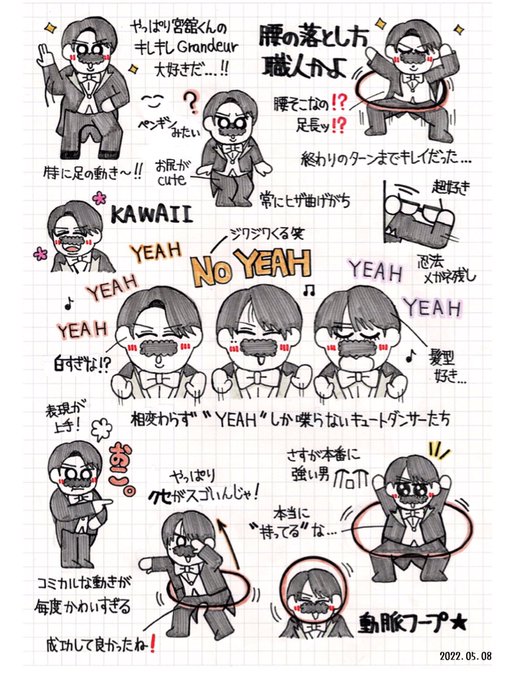 やっぱり宮舘くんの
キレキレGrandeur
大好きだ…!!
腰の落とし方
職人かよ
腰そこなの!?
足長ッ!?
?
ペンギン
みたい
お尻が
cute
特に足の動き〜!!
常にヒザ曲げがち
終わりのターンまでキレイだった…
超好き
KAWAII
忍法
メガネ残し
ジワジワくる笑
YEAH
YEAH
YEAH
NO YEAH
YEAH
YEAH
白すぎな!?
髪型
好き…
相変わらず"YEAH"しか喋らないキュートダンサーたち
表現が
上手!
おこ。
やっぱり
クセがスゴいんじゃ!
さすが本番に
強い男
本当に
"持ってる"な…
コミカルな動きが
毎度かわいすぎる
成功して良かったね!
動脈フープ★
2022.05.08